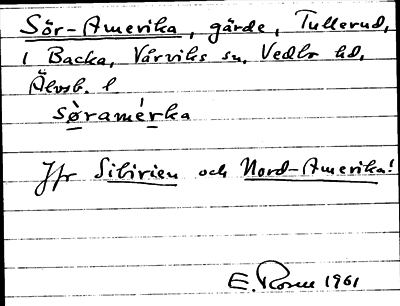 Sör-Amerika, gärde, Tullerud,
1 Backa, Vårviks sn, Vedbo hd,
Älvsb. l
sø̀ramérka
Jfr Sibirien och Nord-Amerika!
E. 1961